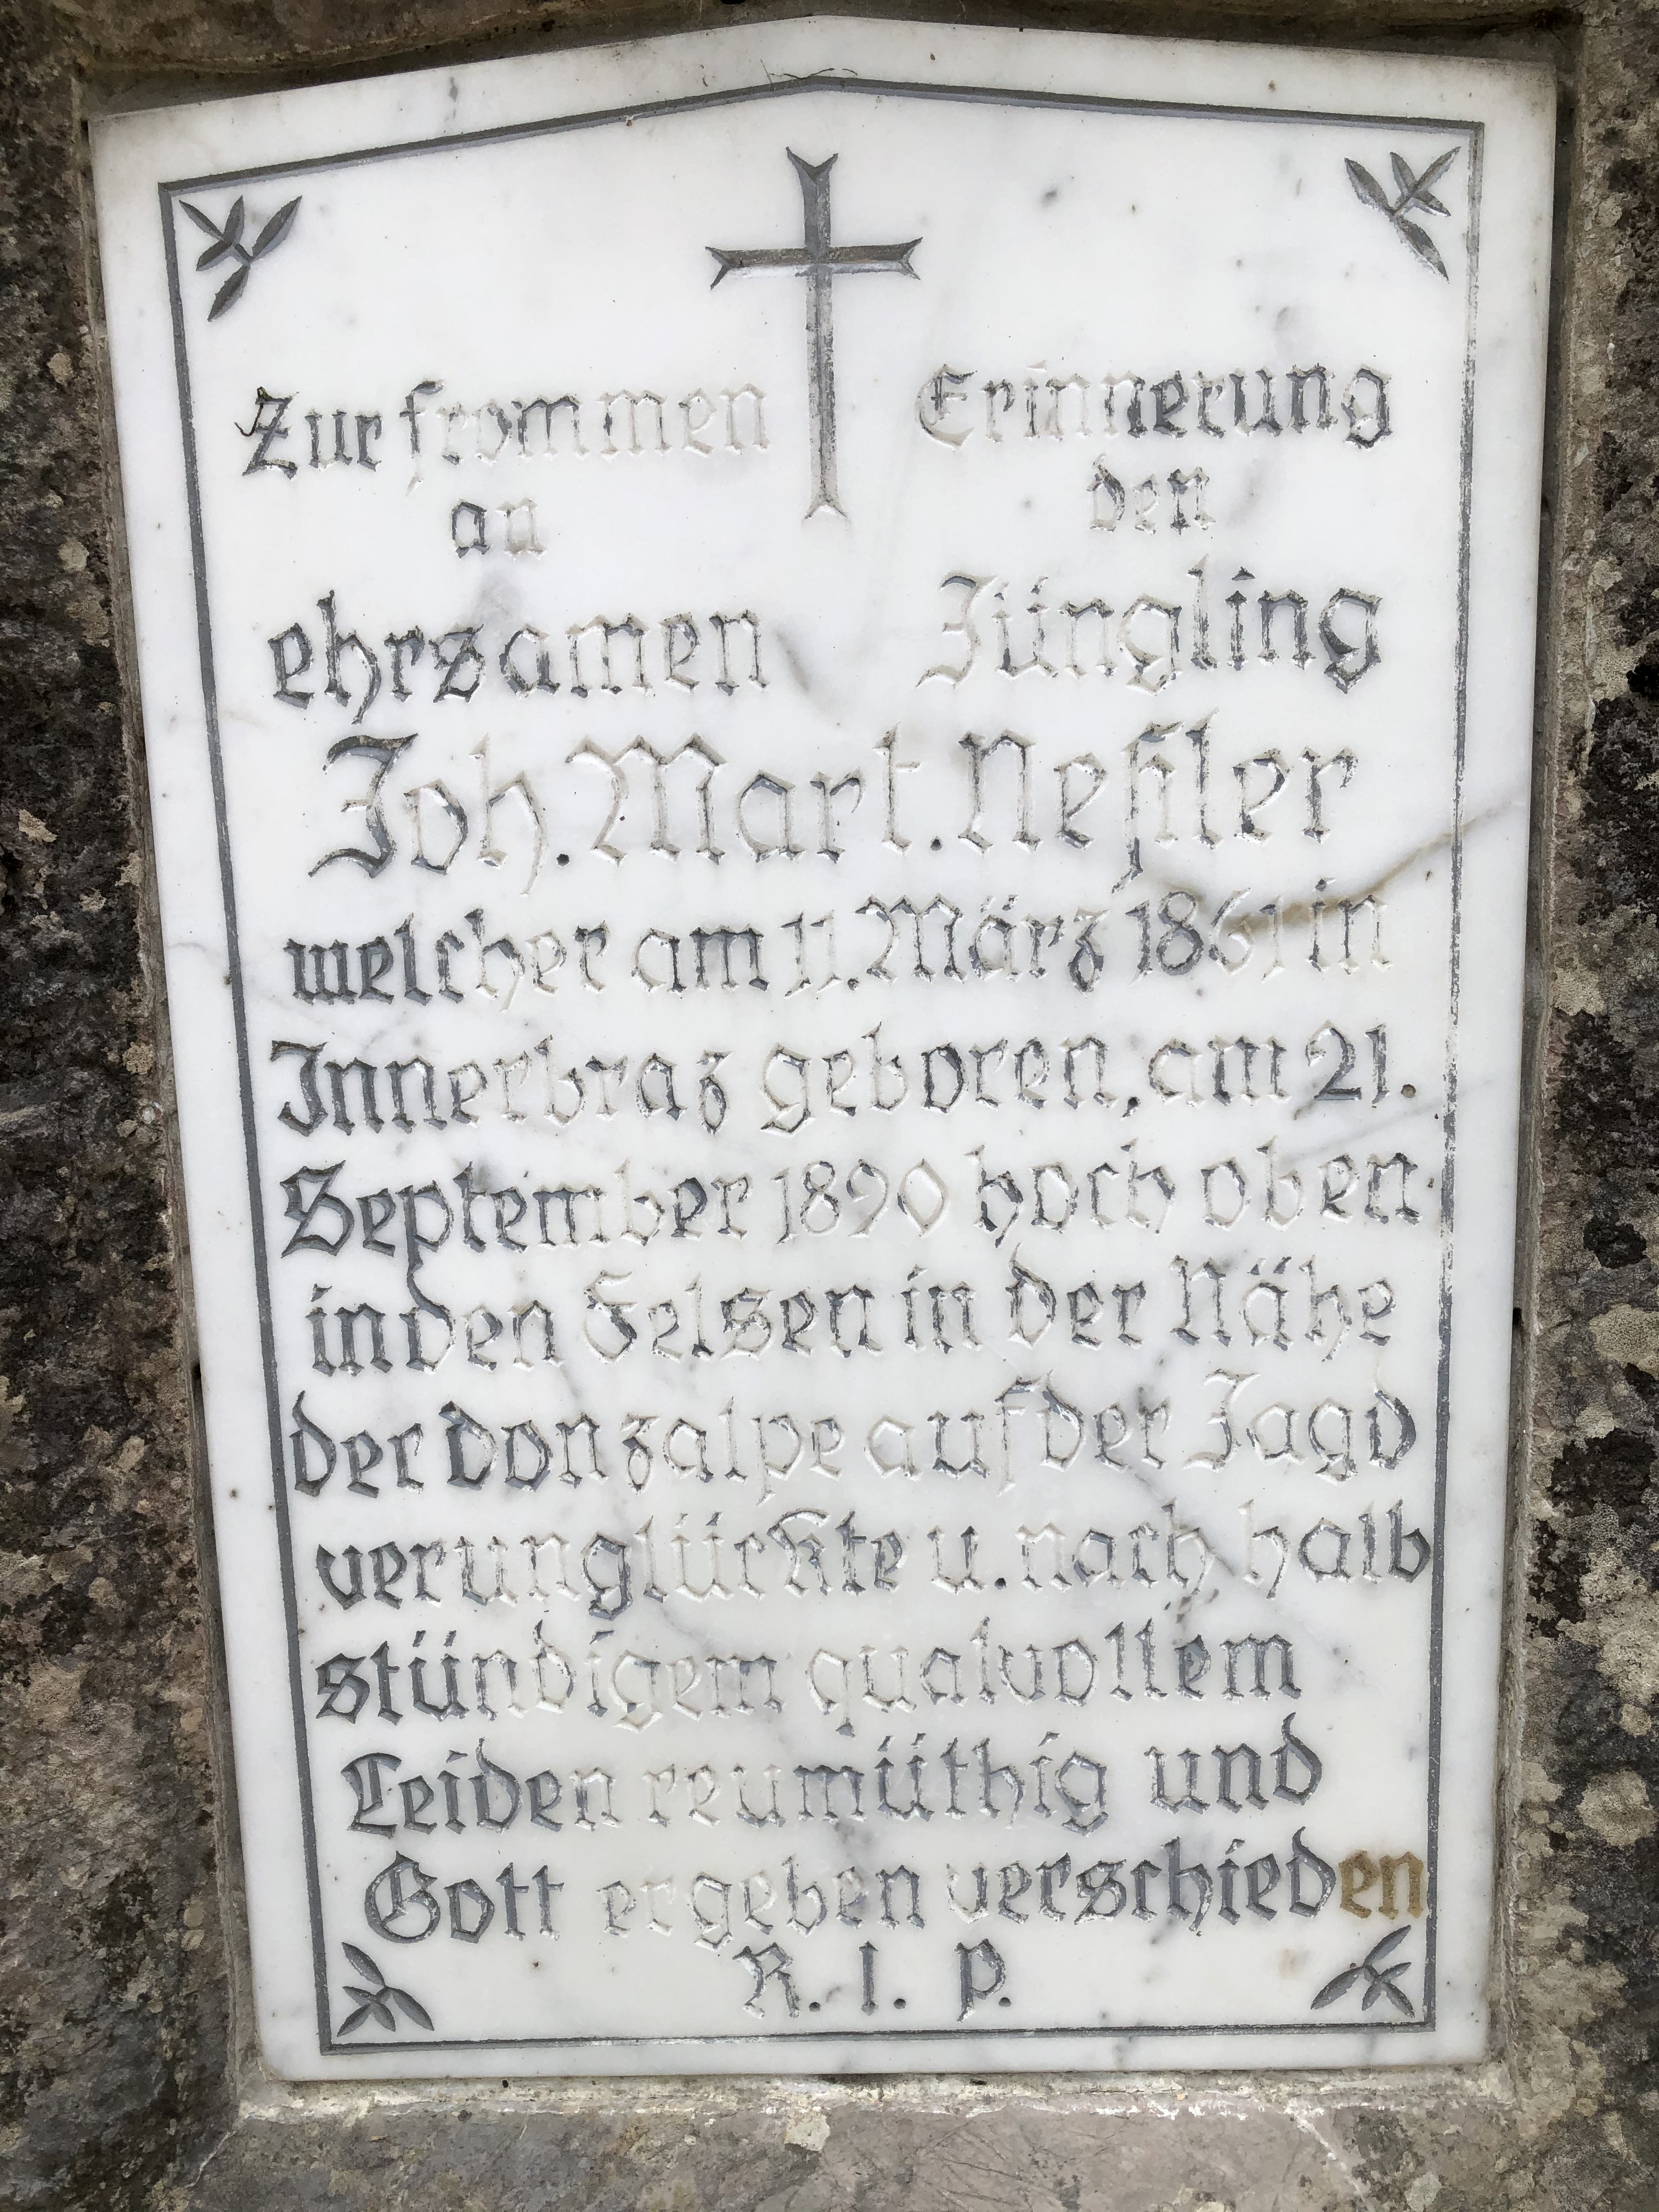 Zur frommen Erinnerung
an den
ehrsamen Jüngling
Joh. Mart. Neßler
welcher am 11. März 1861 in
Innerbraz geboren, am 21.
September 1890 hoch oben
in den Felsen in der Nähe
der Donzalpe auf der Jagd
verunglückte u. nach halb
stündigem qualvollem
Leiden reumüthig und
Gott ergeben verschieden
R. I. P.